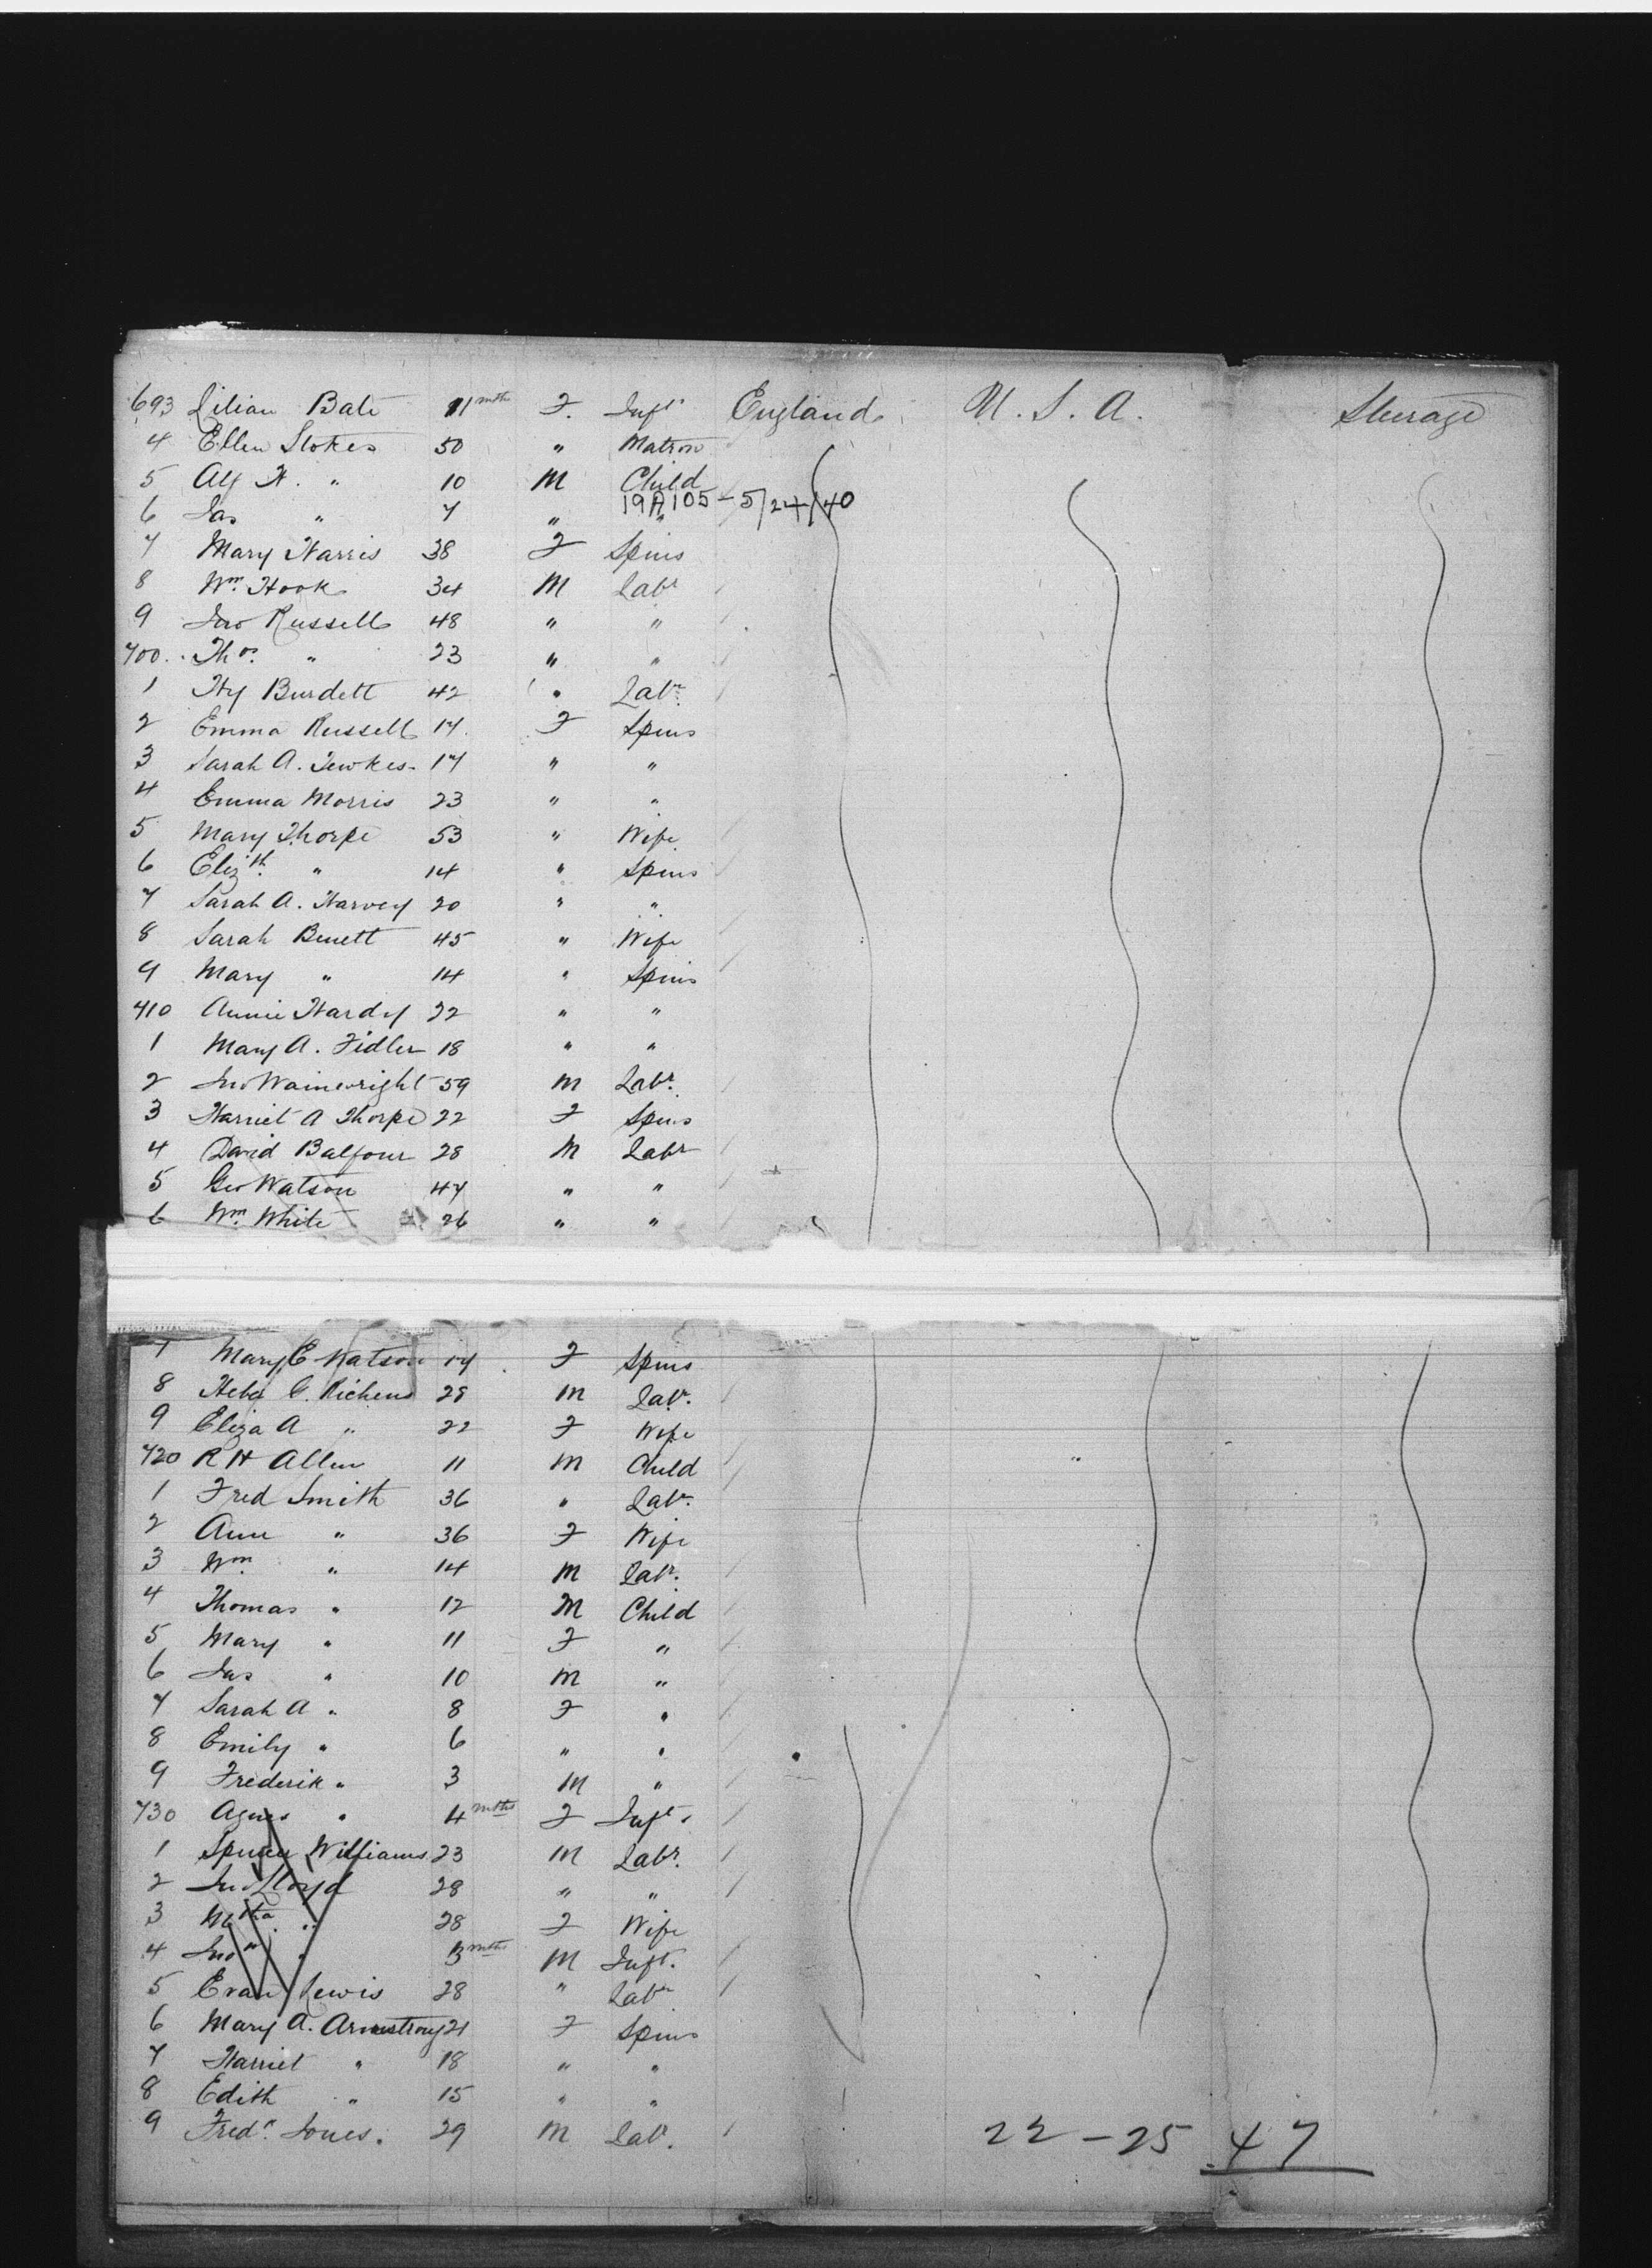 693 Lilian Bate 11 mths F. Inft England U. S. A. Steerage
4 Ellen Stokes 50 " Matron
5 Alf H. " 10 M Child
6 Jas " 7 " "
19A105-5/24/40
7 Mary Harris 38 F Spins
8 Wm. Hook 34 M Labr
9 Jno Russell 48 " "
700. Thos. " 23 " "
1 Hy Burdett 42 " Labr.
2 Emma Russell 17 F Spins
3 Sarah A. Tewkes 17 " "
4 Emma Morris 23 " "
5 Mary Thorpe 53 " Wife
6 Elizth. " 14 " Spins
7 Sarah A. Harvey 20 " "
8 Sarah Benett 45 " Wife
9 Mary " 14 " Spins
710 Annie Hardy 22 " "
1 Mary A. Fidler 18 " "
2 Jno Wainwright 59 M Labr.
3 Harriet A Thorpe 22 F Spins
4 David Balfour 28 M Labr
5 Geo Watson 47 " "
6 Wm. White 26 " "
7 Mary E Watson 17 F Spins
8 C. Richens 28 M Labr.
9 Eliza A " 22 F Wife
720 R H Allen 11 M Child
1 Fred Smith 36 " Labr.
2 Ann " 36 F Wife
3 Wm. " 14 M Labr.
4 Thomas " 12 M Child
5 Mary " 11 F "
6 Jas " 10 M "
7 Sarah A " 8 F "
8 Emily " 6 " "
9 Frederik " 3 M "
730 Agnes " 4 mths F Inft.
1 Williams 23 M Labr.
2 Jno Lloyd 28 " "
3 " 28 F Wife
4 Jno " 3 mths M Inft.
5 Evan Lewis 28 " Labr
6 Mary A. Armstrong 21 F Spins
7 Harriet " 18 " "
8 Edith " 15 " "
9 Fredk. Jones. 29 M Lab.
22 - 25 47